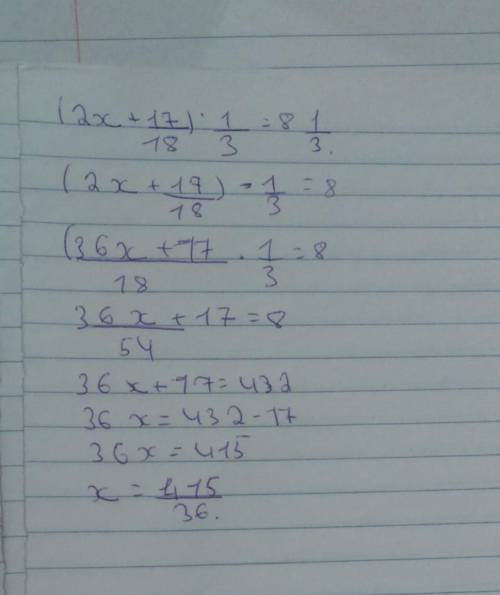 (2x + 17/18) · 1/3 = 8 1/3.
(2x + 17/18) · 1/3 = 8
(36x + 17/18 · 1/3 = 8
36x/54 + 17 = 8
36x + 17 = 432
36x = 432 - 17
36x = 415
x = 415/36.